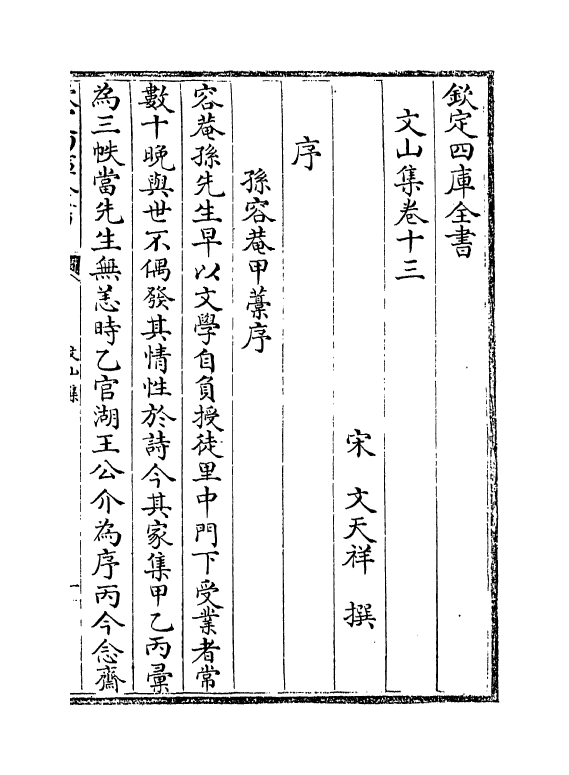 欽定四庫全書
文山集卷十三
宋 文天祥 撰
序
孫容菴甲藁序
容菴孫先生早以文學自負授徒里中門下受業者常
數十晚與世不偶發其情性於詩今其家集甲乙丙彙
為三帙當先生無恙時乙官湖王公介為序丙今念齋
文山集
一